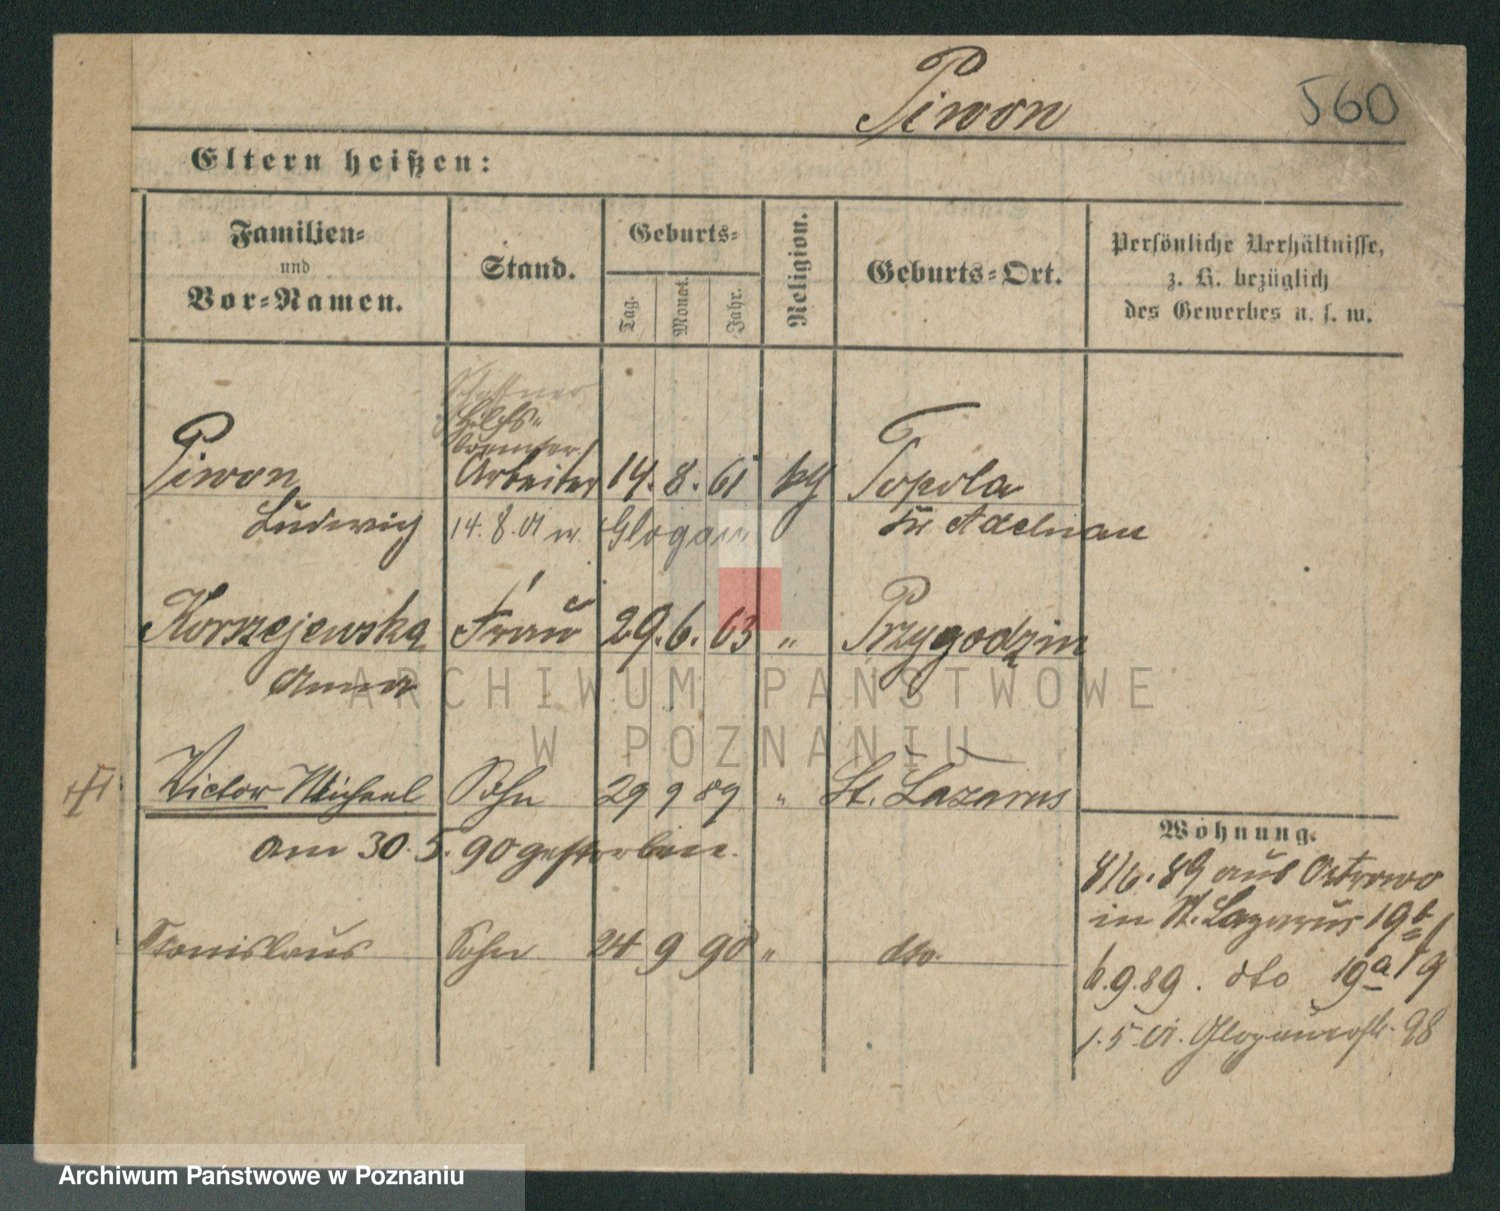 Piwon
560
Eltern heißen:
Familien-
und
Vor-Namen.
Stand.
Geburts-
Tag.
Monat.
Jahr.
Religion.
Geburts-Ort.
Persönliche Verhältnisse,
z. B. bezüglich
des Gewerbes u. s. w.
Schaffner
Hilfs-
Piwon Arbeiter 14. 8. 61 kg Topola
Ludwig 14. 8. 01 n. Glogau Kr Adelnau
Korszejewska Frau 29. 6. 63 " Przygodzin
Anna
Victor Michael Sohn 29 9 89 " St. Lazarus
am 30. 5. 90 gestorben.
Stanislaus Sohn 24 9 90 " dto.
Wohnung.
8/6. 89 aus Ostrowo
in St. Lazarus 19b
6. 9. 89. dto 19a
1. 5. 01. Glogauerstr. 98
ARCHIWUM PAŃSTWOWE
W POZNANIU
Archiwum Państwowe w Poznaniu